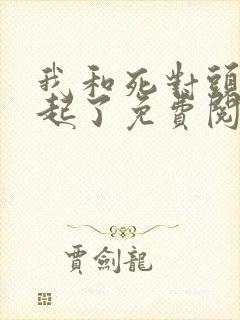 我和死對頭
起了免費閱
賈劍龍